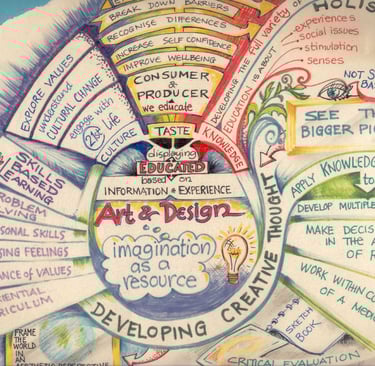 BREAK DOWN BARRIERS
RECOGNISE DIFFERENCES
INCREASE SELF CONFIDENCE
IMPROVE WELLBEING
CONSUMER
&
PRODUCER
we educate
TASTE
displaying
EDUCATED
based on
INFORMATION & EXPERIENCE
Art & Design
imagination
as a
resource
DEVELOPING CREATIVE THOUGHT
EXPLORE VALUES
understand
CULTURAL CHANGE
engage with
21st C life
CULTURE
KNOWLEDGE
EDUCATION IS ABOUT
DEVELOPING THE full variety of
HOLIS
experiences
social issues
stimulation
senses
NOT S
BAS
SEE TH
BIGGER PIC
APPLY KNOWLEDG
to
DEVELOP MULTIPLE
MAKE DECIS
IN THE A
OF R
WORK WITHIN CO
OF A MED
SKETCH
BOOK
CRITICAL EVALUATION
SKILLS
BASED
LEARNING
PROBLEM
LVING
SONAL SKILLS
SING FEELINGS
ANCE OF VALUES
ERIENTIAL
RRICULUM
FRAME
THE
WORLD
IN
AN